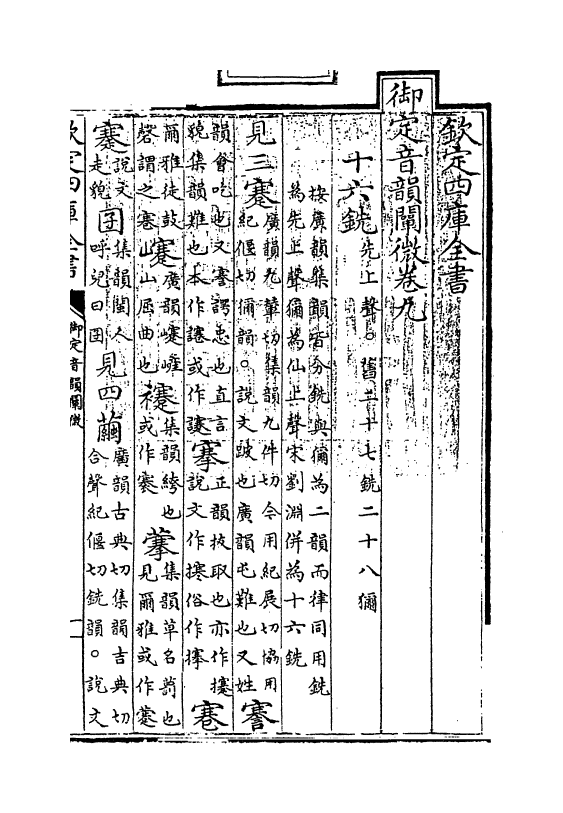 欽定四庫全書
御定音韻闡微卷九
十六銑先上聲○舊二十七銑二十八獮
按廣韻集韻皆分銑與獮為二韻而律同用銑
為先上聲獮為仙上聲宋劉淵併為十六銑
見三蹇廣韻九輦切集韻九件切今用紀展切協用
紀偃切獮韻○說文跛也廣韻屯難也又姓
謇
韻會吃也又謇諤忠也直言
貌集韻難也本作㥶或作讓
搴正韻拔取也亦作攓
說文作㩃俗作㨜
寋
爾雅徒鼓
磬謂之寋
㠊廣韻㠊嵼
山屈曲也
褰集韻絝也
或作寋
蓒集韻草名葥也
見爾雅或作藆
䞿說文
走貌
囝集韻閩人
呼兒曰囝
見四繭廣韻古典切集韻吉典切
合聲紀偃切銑韻○說文
欽定四庫全書
御定音韻闡微
一